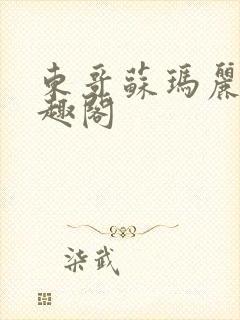 東哥蘇瑪麗
趣閣
柒武